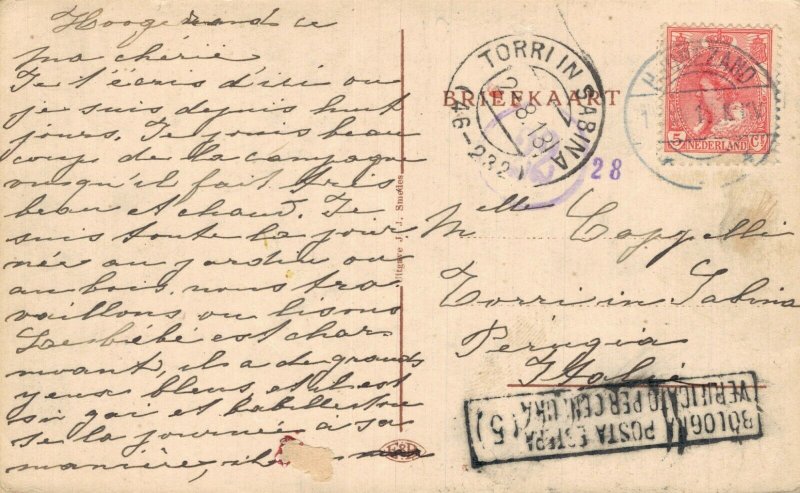 Hoogezand ce
ma chérie
Je t'écris d'ici où
je suis depuis huit
jours. Je jouis beau
coup de la campagne
vusqu'il fait très
beau et chaud. Je
suis toute la jour
née au jardin ou
au bois. nous tra
vaillons ou lisons
bébé est char
mant, il a de grands
yeux bleus et il est
si gai et babille toute
la journée à sa
manière, il
Uitgave J. J. Smedes
E&B
BRIEFKAART
TORRI IN SABINA
28
5 Ct
NEDERLAND
Mlle Cappelli
Torri in Sabina
Perugia
Italie
BOLOGNA POSTA ESTERA
VERIFICATO PER CENSURA
(5)